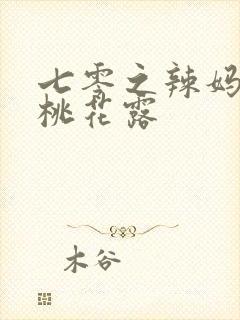 七零之辣妈
桃花露
木谷